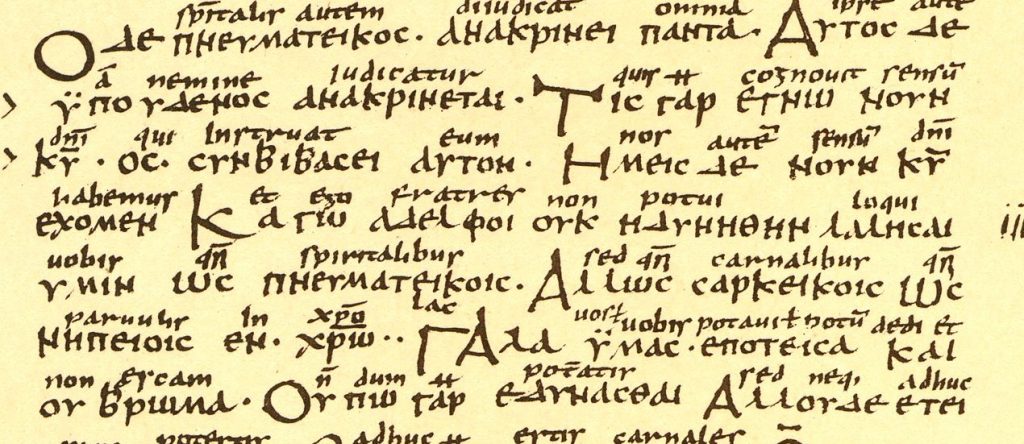 sp̄italis autem diiudicat omnia ipse aute
Ο δε πνευματεικος· ανακρινει παντα· Αυτος δε
ā nemine iudicatur quis cognouit sensū
ϋπο υδενος ανακρινεται· Τις γαρ εγνω νουν
dn̄i qui instruat eum nos autē sensū dn̄i
κ̄ῡ· ος· συνβιβασει αυτον· Ημεις δε νουν κ̄ῡ
habemus et ego fratres non potui loqui
εχομεν Καγω αδελφοι ουκ ηδυνηθην λαλησαι
uobis spiritalibus sed carnalibus
υμιν ως πνευματεικοις· Αλλως σαρκεικοις ως
paruulis in xp̄o lac uobis potaui potū dedi et
νηπειοις εν· χρ̄ω·· Γαλα ϋμας· εποτεισα και
non escam n̄ dum potatis sed neq, adhuc
ου βρωμα· Ουπω γαρ εδυνασθαι Αλλουδε ετει
potestis adhuc estis carnales